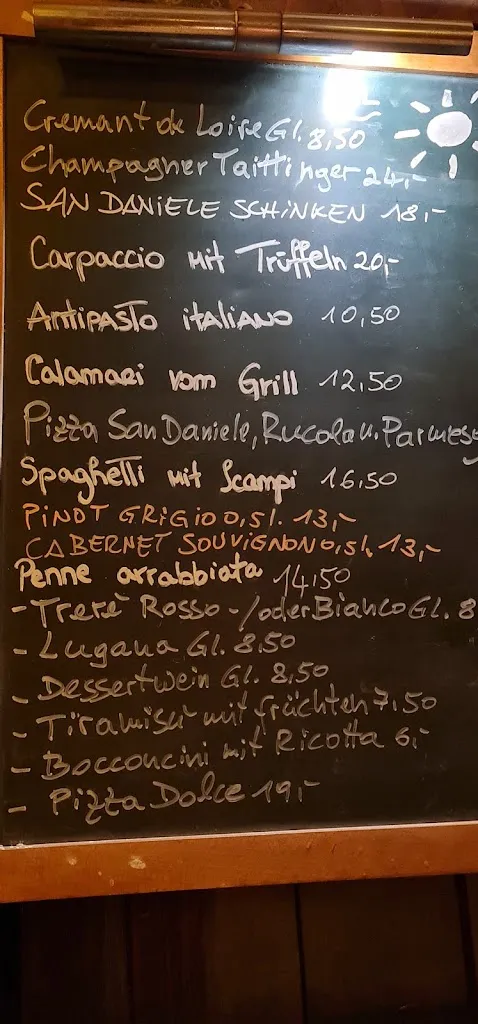 Cremant de Loire Gl. 8,50
Champagner Taittinger 24,-
SAN DANIELE SCHINKEN 18,-
Carpaccio mit Trüffeln 20,-
Antipasto italiano 10,50
Calamari vom Grill 12,50
Pizza San Daniele, Rucola u. Parmes
Spaghetti mit Scampi 16,50
PINOT GRIGIO 0,5l. 13,-
CABERNET SOUVIGNON 0,5l. 13,-
Penne arrabbiata 14,50
- Trerè Rosso -/oder Bianco Gl. 8
- Lugana Gl. 8,50
- Dessertwein Gl. 8,50
- Tiramisu mit früchten 7,50
- Bocconcini mit Ricotta 6,-
- Pizza Dolce 19,-